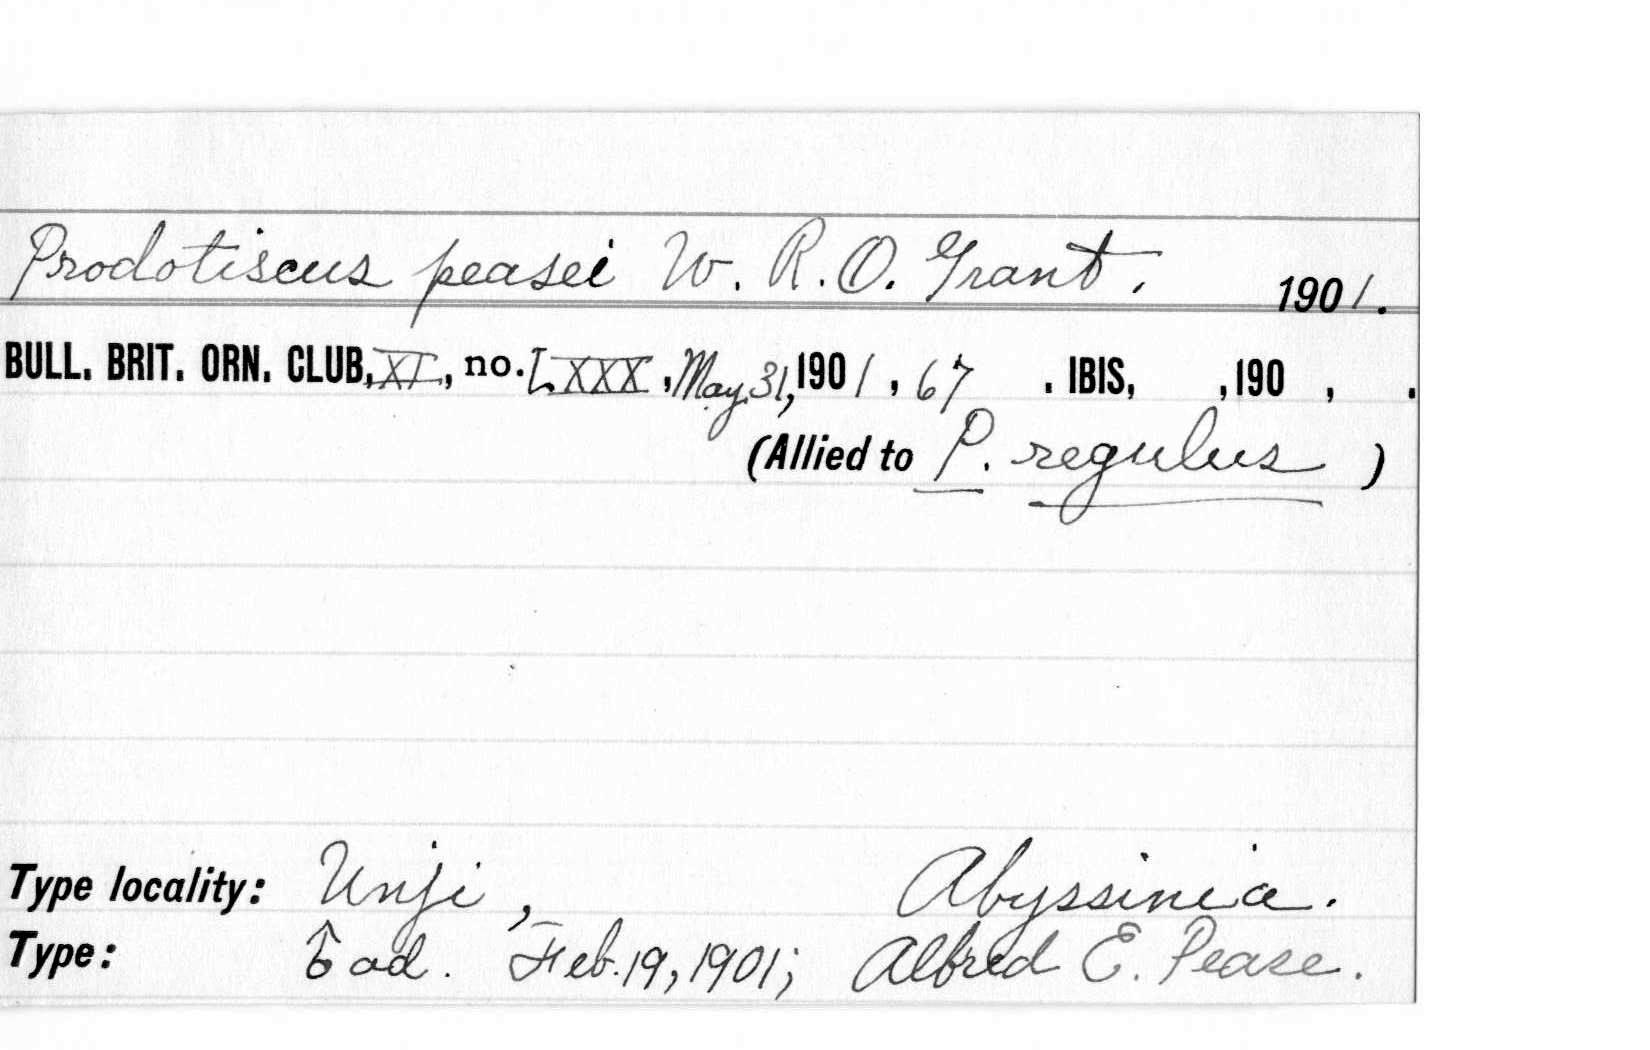 Prodotiscus peasei W. R. O. Grant. 1901.
BULL. BRIT. ORN. CLUB, XI, no. LXXX, May 31, 1901, 67 . IBIS, , 190 , .
(Allied to P. regulus )
Type locality: Unji, Abyssinia.
Type: ♂ ad. Feb. 19, 1901; Alfred E. Pease.